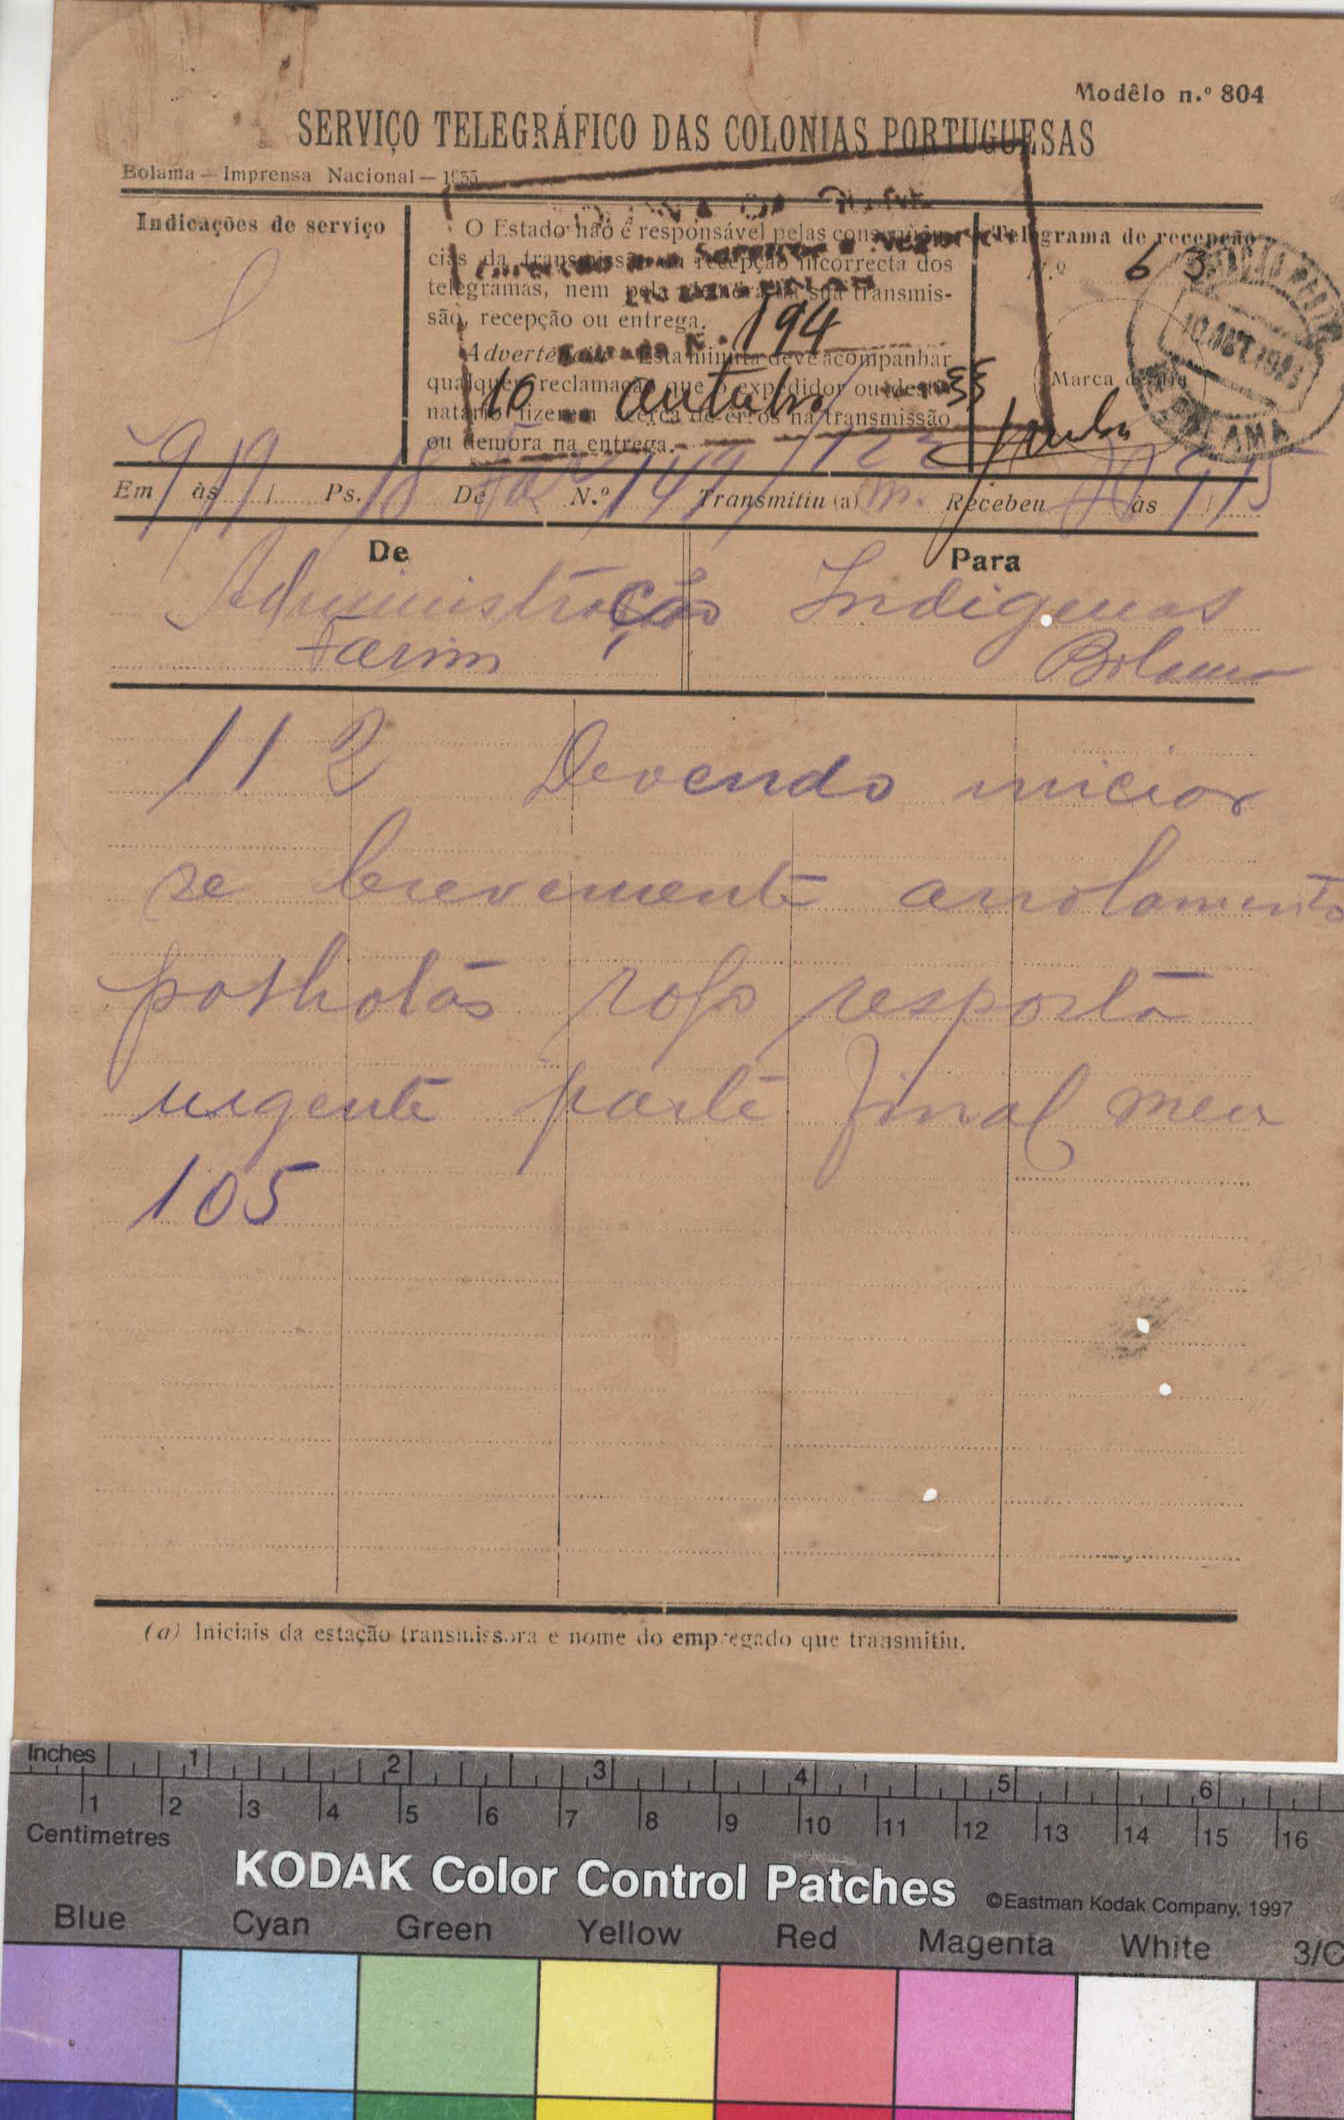 Modêlo n.º 804
SERVIÇO TELEGRÁFICO DAS COLONIAS PORTUGUESAS
Bolama — Imprensa Nacional — 1933
Indicações de serviço
O Estado não é responsável pelas consequên-
cias da transmissão ou recepção incorrecta dos
telegramas, nem pela demora na sua transmis-
são, recepção ou entrega.
Advertência Esta minuta deve acompanhar
qualquer reclamação que o expedidor ou desti-
natário fizerem acêrca de erros na transmissão
ou demora na entrega.
194
10 outubro 35
Telegrama de recepção
N.º 63
Marca do dia
BOLAMA
Em 9 às 19 Ps. 18 De Far N.º 149 Transmitiu (a) m. Recebeu às 9,15
De
Para
Administração Indigenas
Farim Bolama
112 Devendo iniciar
se brevemente arrolamento
palhotas rogo resposta
urgente parte final meu
105
(a) Iniciais da estação transmissora e nome do empregado que transmitiu.
Inches 1 2 3 4 5 6
1 2 3 4 5 6 7 8 9 10 11 12 13 14 15 16
Centimetres
KODAK Color Control Patches ©Eastman Kodak Company, 1997
Blue Cyan Green Yellow Red Magenta White 3/C